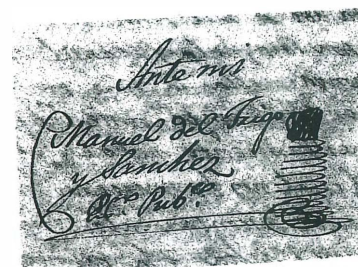 Ante mi
Manuel del Trigo
y Sanchez
Pub.co